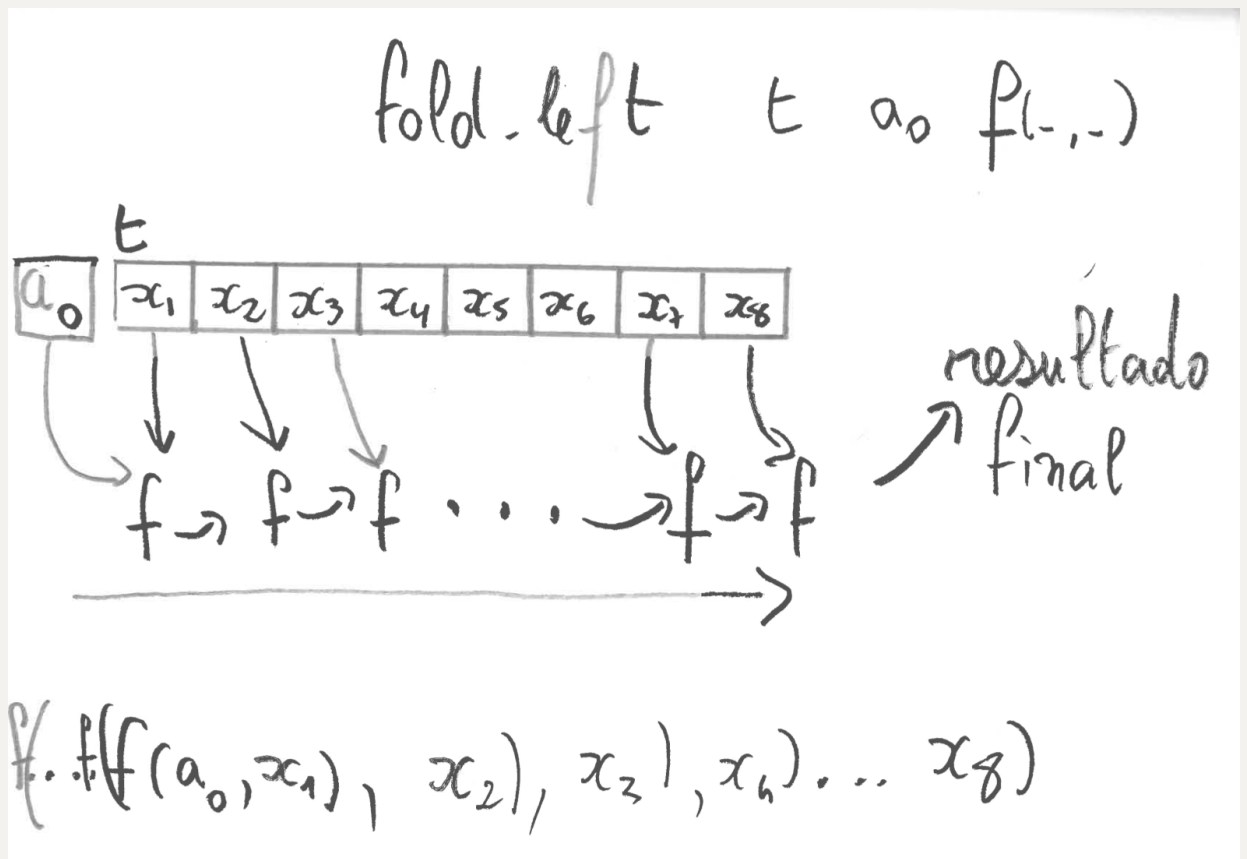 fold_left t a₀ f(-,-)
t
a₀ x₁ x₂ x₃ x₄ x₅ x₆ x₇ x₈
resultado
final
f → f → f . . . → f → f
f(..f(f(a₀,x₁), x₂), x₃), x₄)... x₈)